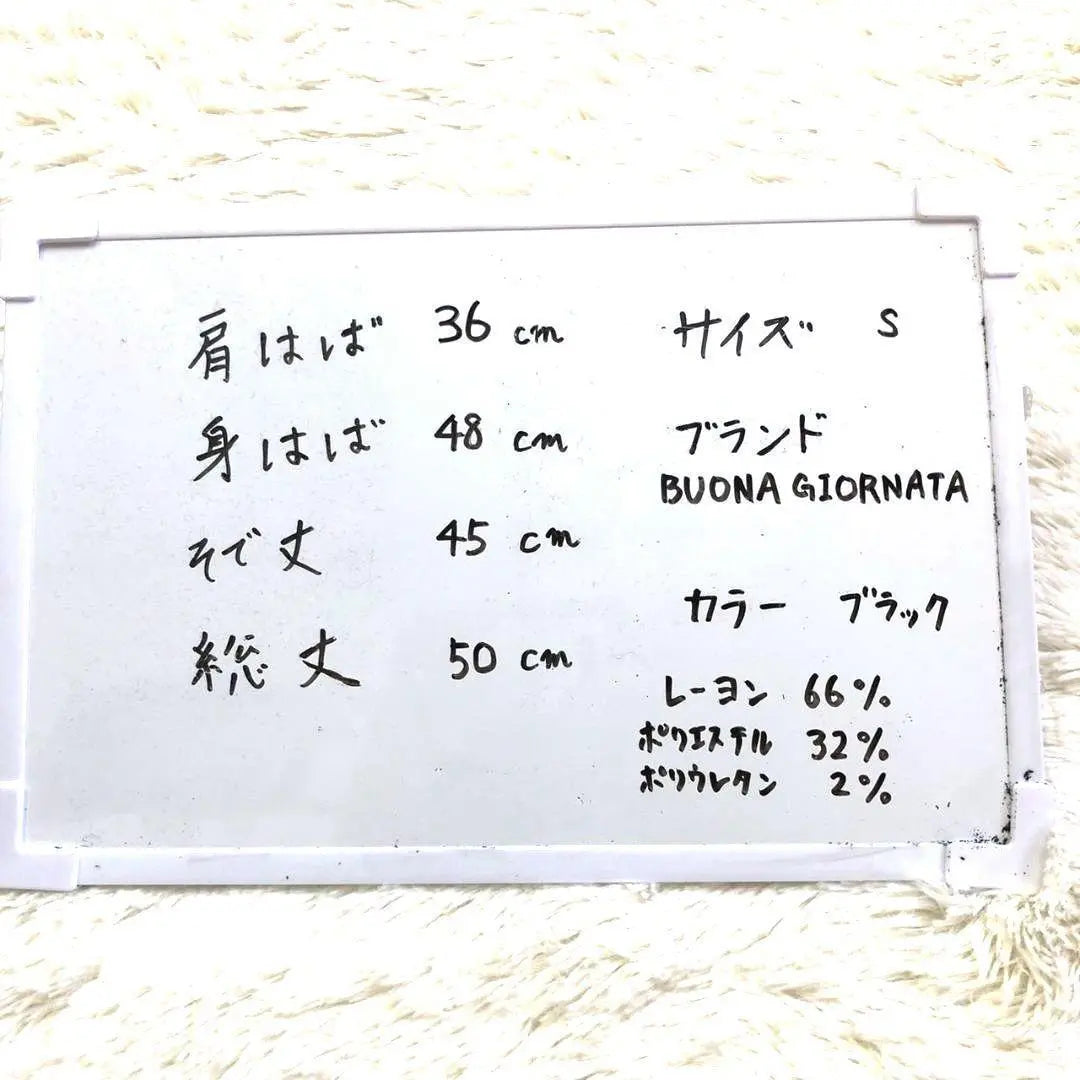 肩はば 36 cm
身はば 48 cm
そで丈 45 cm
総丈 50 cm
サイズ S
ブランド
BUONA GIORNATA
カラー ブラック
レーヨン 66%
ポリエステル 32%
ポリウレタン 2%